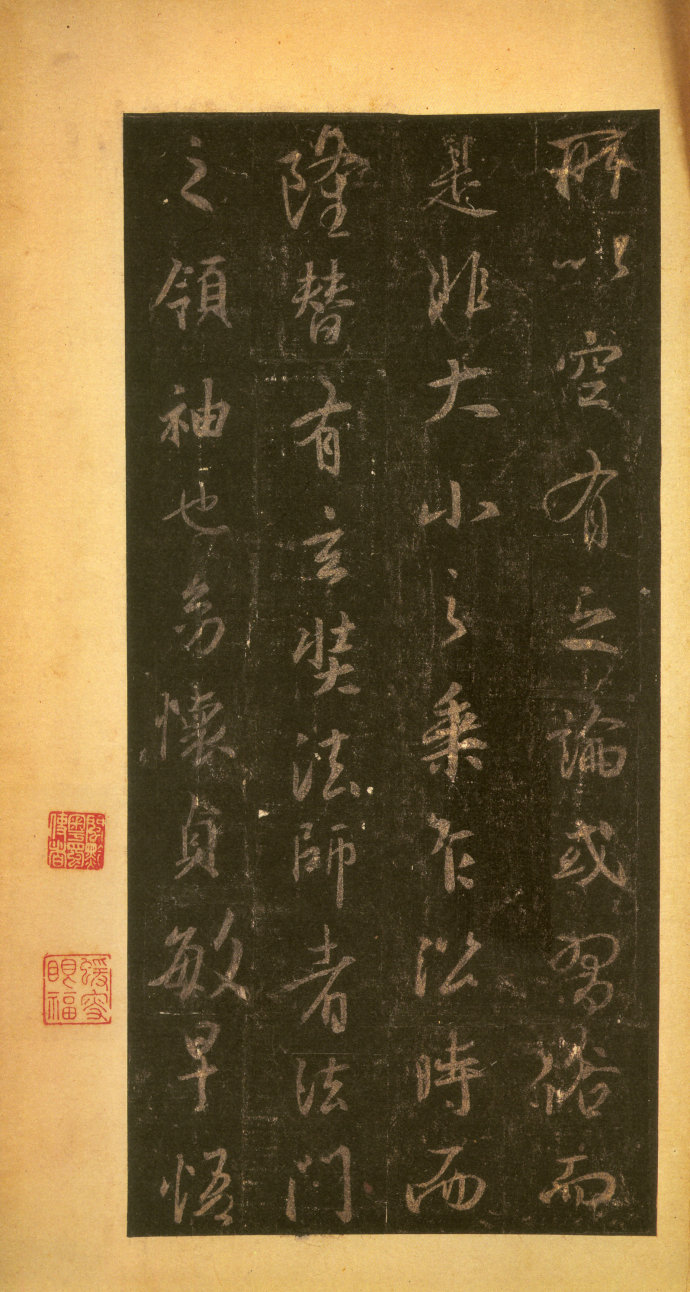 所以空有之論或習俗而
是非大小之乘乍沿時而
隆替有玄奘法師者法門
之領袖也幼懷貞敏早悟
眼福